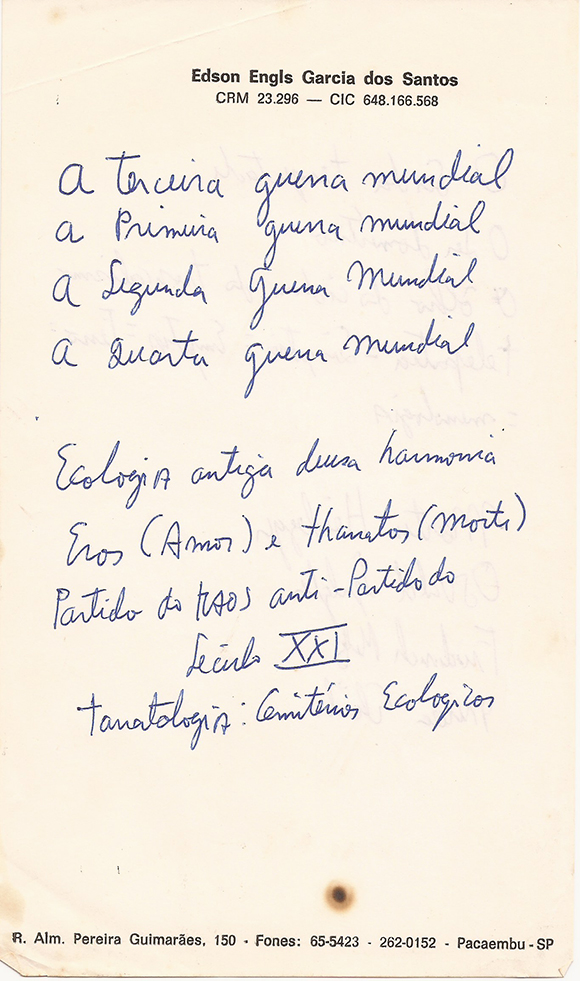 Edson Engls Garcia dos Santos
CRM 23.296 — CIC 648.166.568
A terceira guerra mundial
a Primeira guerra mundial
A Segunda Guerra Mundial
A Quarta guerra mundial
Ecologia antiga deusa harmonia
Eros (Amor) e thanatos (morte)
Partido do KAOS anti-Partido do
Século XXI
tanatologia: Cemitérios Ecologicos
R. Alm. Pereira Guimarães, 150 - Fones: 65-5423 - 262-0152 - Pacaembu - SP